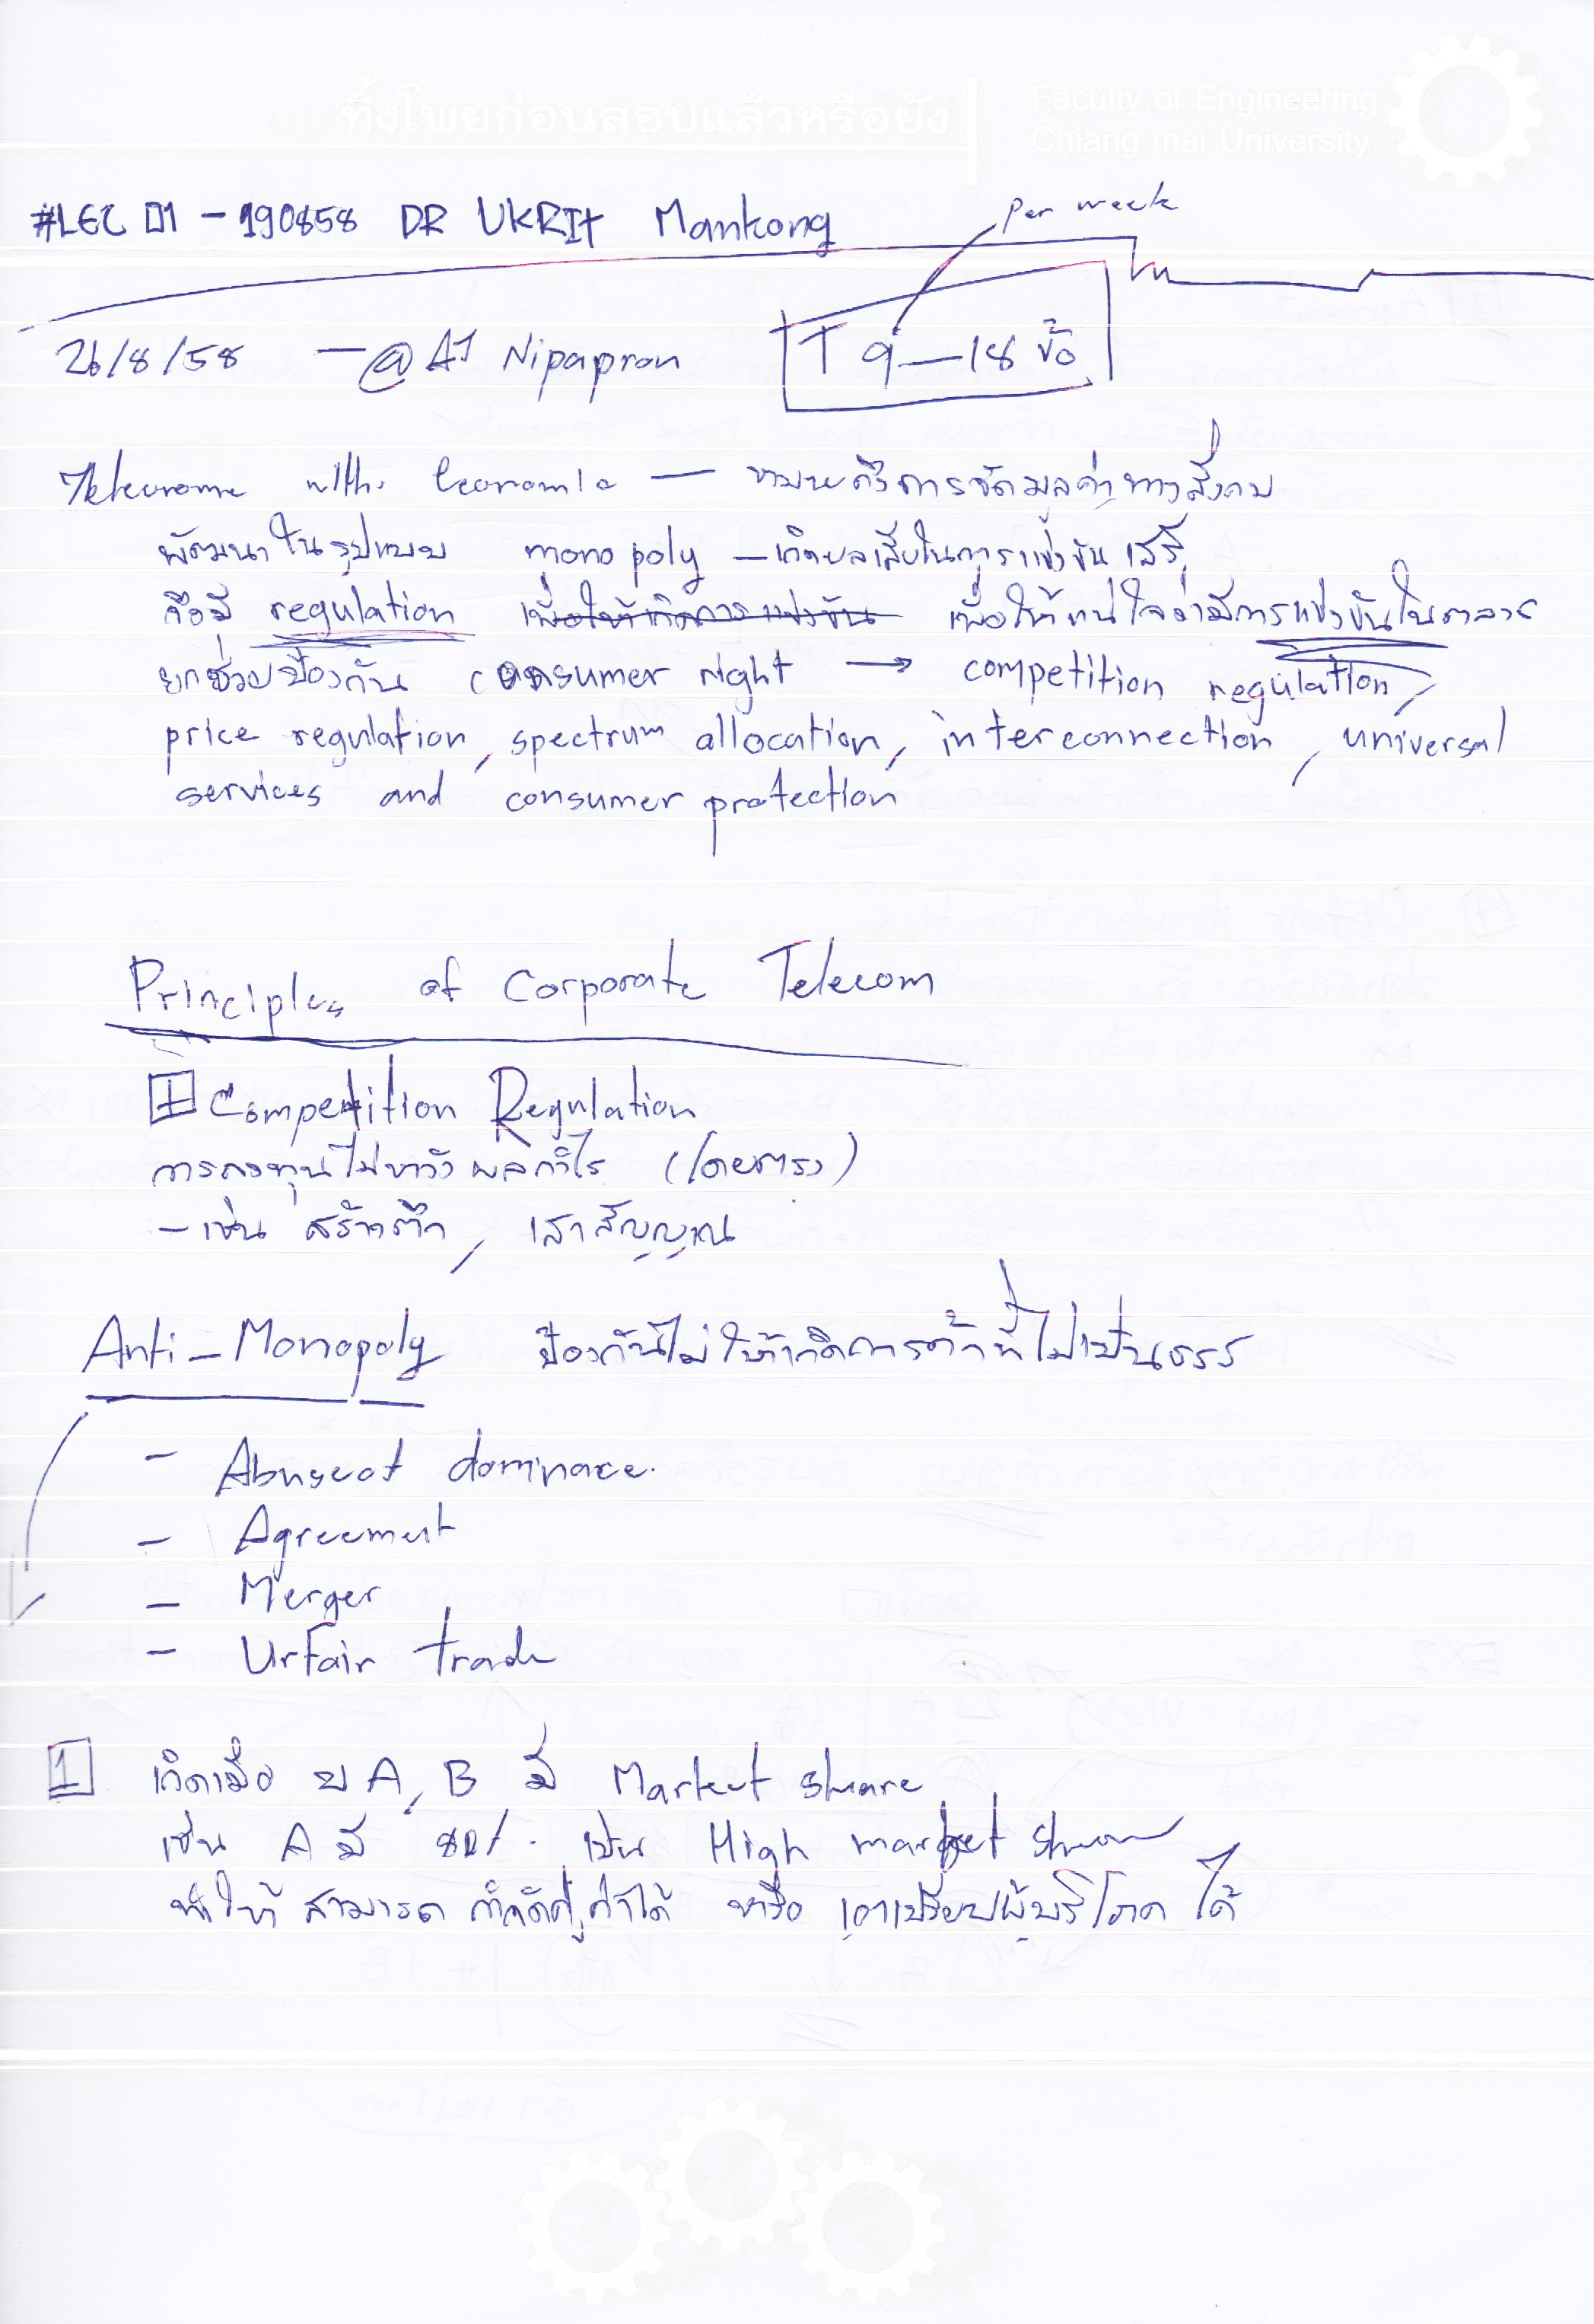 ทิ้งโพยก่อนสอบแล้วหรือยัง
Faculty of Engineering
Chiang mai University
#LEC 01 - 190858 DR UKRIt Mankong
per week
26/8/58 — @ AJ Nipapron
T 9 — 18 ข้อ
with Economic — หมายถึงการจัดมูลค่าทางสังคม
พัฒนาในรูปแบบ monopoly — เกิดผลเสียในการแข่งขันเสรี
จึงมี regulation เพื่อให้เกิดการแข่งขัน เพื่อให้แน่ใจว่ามีการแข่งขันในตลาด
ช่วยป้องกัน consumer right → competition regulation,
price regulation, spectrum allocation, interconnection, universal
services and consumer protection
Principles of Corporate Telecom
1 Competition Regulation
การลงทุนไม่หวังผลกำไร (โดยตรง)
- เช่น สร้างตึก, เสาสัญญาณ
Anti-Monopoly ป้องกันไม่ให้เกิดการค้าที่ไม่เป็นธรร
- Abuseof dominace.
- Agreement
- Merger
- Unfair trade
1 เกิดเมื่อ บ A, B มี Market share
เช่น A มี 80% เป็น High market share
ทำให้ สามารถ กำจัดคู่ค้าได้ หรือ เอาเปรียบผู้บริโภค ได้